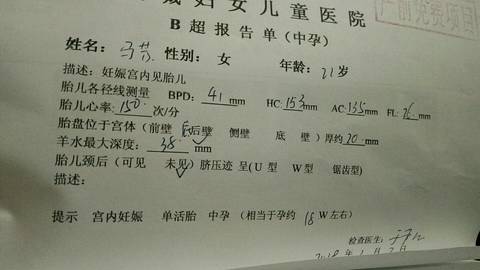 妇女儿童医院
产前免费项目
B 超 报 告 单（中孕）
姓名： 性别： 女 年龄：21岁
描述：妊娠宫内见胎儿
胎儿各径线测量 BPD：41mm HC：153mm AC：135mm FL：26mm
胎儿心率：150次/分
胎盘位于宫体（前壁 后壁 侧壁 底 壁）厚约20mm
羊水最大深度：38 mm
胎儿颈后（可见 未见）脐压迹 呈（U型 W型 锯齿型）
描述：
提示 宫内妊娠 单活胎 中孕（相当于孕约18W左右）
检查医生：
2018年1月2日